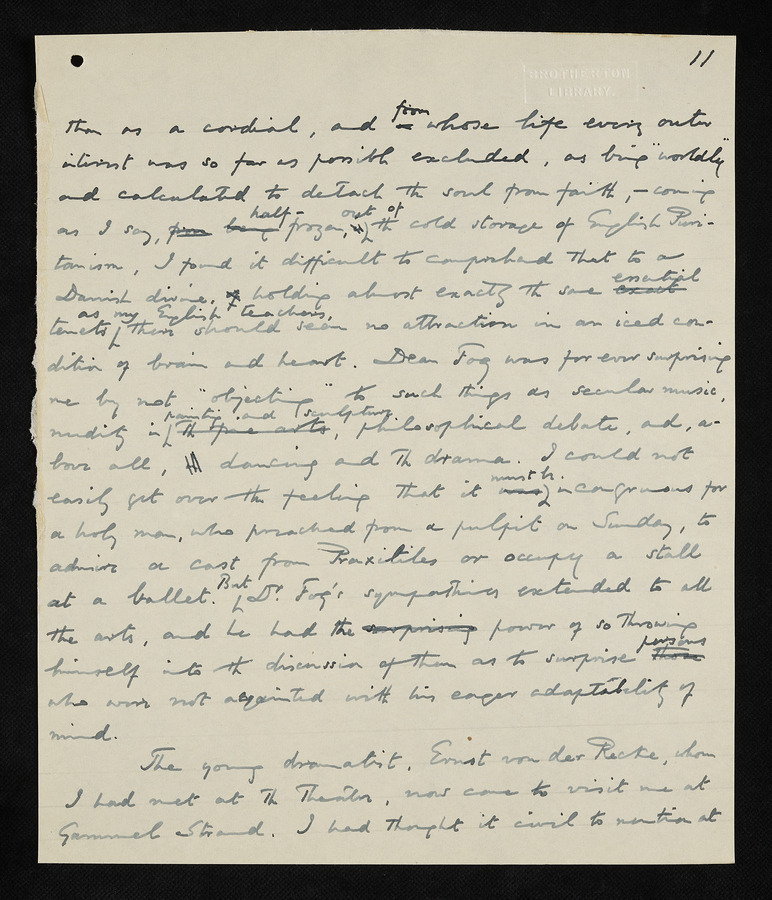 11
BROTHERTON
LIBRARY.
than as a cordial, and from whose life every outer
interest was so far as possible excluded, as being "worldly"
and calculated to detach the soul from faith, – coming
as I say, from being half-frozen, out of the cold storage of English Puri-
tanism, I found it difficult to comprehend that to a
Danish divine, holding almost exactly the same exact essential
tenets as my English teachers, there should seem no attraction in an iced con-
dition of brain and heart. Dean Fog was for ever surprising
me by not "objecting" to such things as secular music,
nudity in the fine arts painting and sculpture, philosophical debate, and, a-
bove all, dancing and the drama. I could not
easily get over the feeling that it was must be incongruous for
a holy man, who preached from a pulpit on Sunday, to
admire a cast from Praxiteles or occupy a stall
at a ballet. But Dr. Fog's sympathies extended to all
the arts, and he had the surprising power of so throwing
himself into the discussion of them as to surprise those persons
who were not acquainted with his eager adaptability of
mind.
The young dramatist, Ernst von der Recke, whom
I had met at the Theatre, now came to visit me at
Gammel Strand. I had thought it civil to mention at